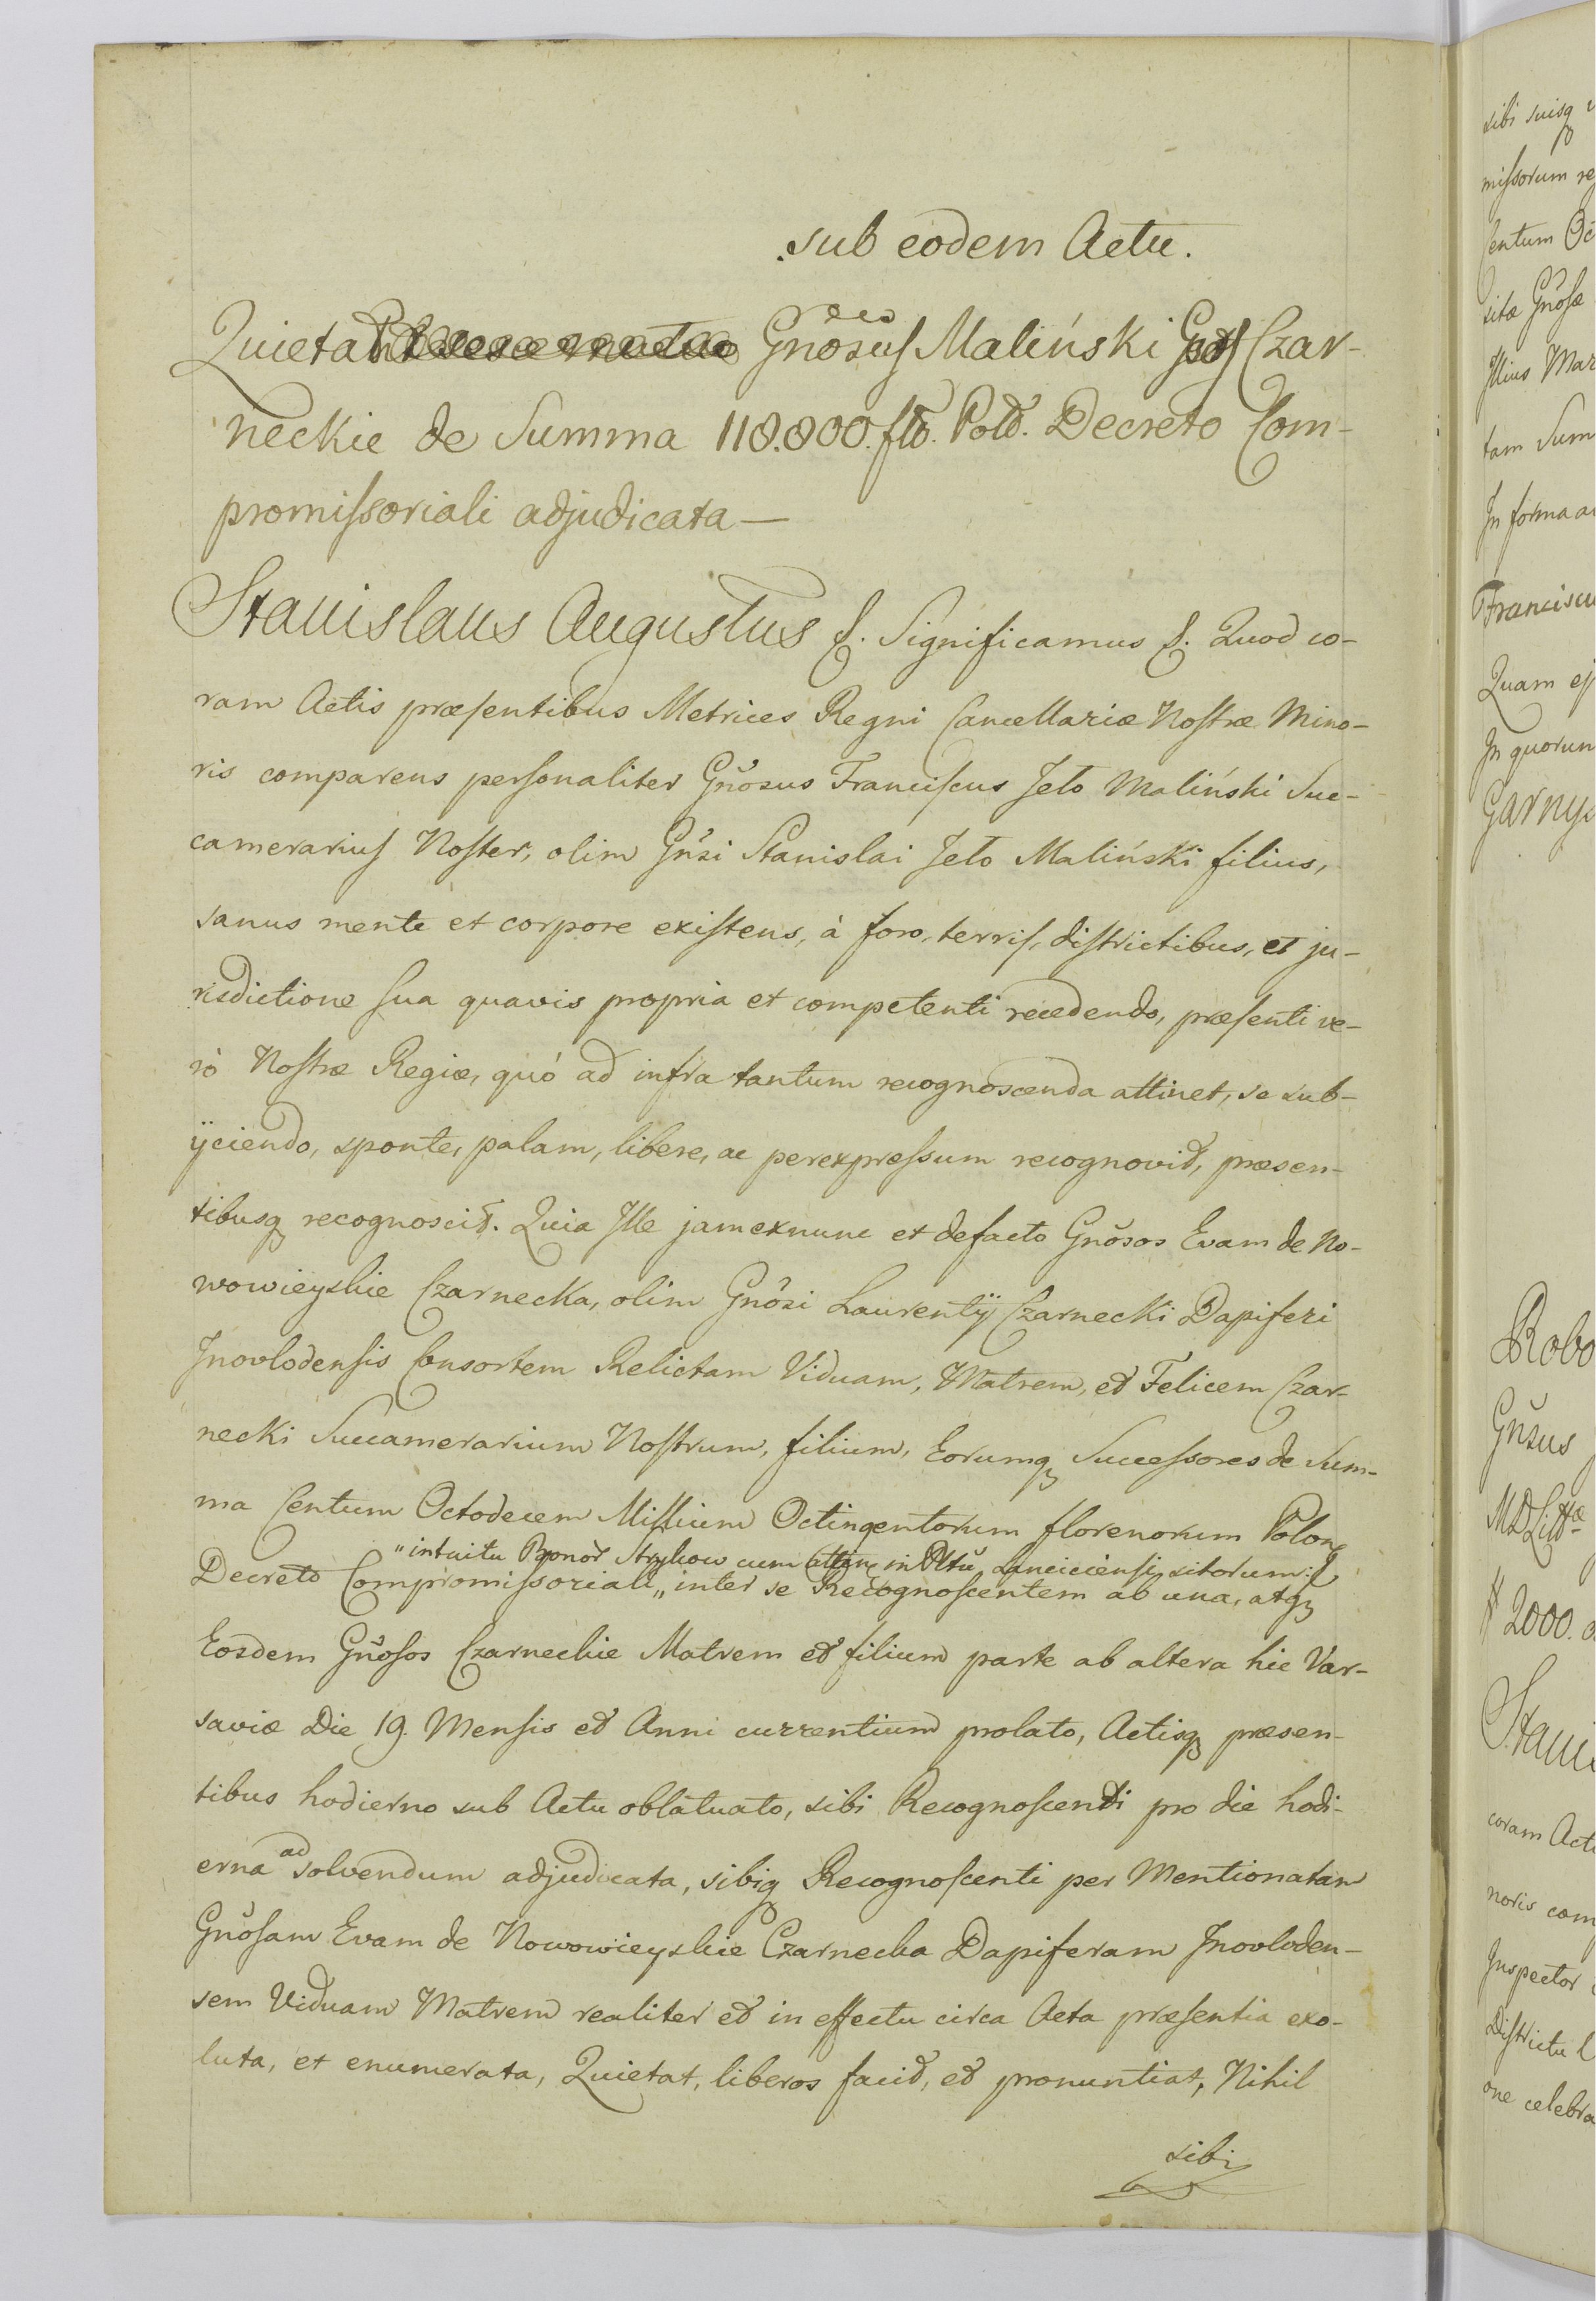 sub eodem Actu.
Quietat Gnõsus Maliński Gsos Czar-
neckie de Summa 118.800. fló. Pold. Decreto Com-
promissoriali adjudicata —
Stanislaus Augustus &. Significamus &. Quod co-
ram Actis præsentibus Metrices Regni Cancellariæ Nostræ Mino-
ris comparens personaliter Gnõsus Franciscus Jeło Maliński Suc-
camerarius Noster, olim Gnsi Stanislai Jeło Maliński filius,
sanus mente et corpore existens, à foro, terris, districtibus, et ju-
risdictione sua quavis propria et competenti recedendo, præsenti ve-
rò Nostræ Regiæ, quó ad infra tantum recognoscenda attinet, se sub-
ÿciendo, sponte, palam, libere, ac perexpressum recognovit, præsen-
tibusq recognoscit. Quia Ille jamexnunc et defacto Gnõsos Evam de No-
wowieyskie Czarnecka, olim Gnõsi Laurentÿ Czarnecki Dapiferi
Jnovlodensis Consortem Relictam Viduam, Matrem, et Felicem Czar-
necki Succamerarium Nostrum, filium, Eorumq Successores de Sum-
ma Centum Octodecem Millium Octingentorum florenorum Polon
"intuitu Bonor Strykow cum attin in Pltũ Lanciciensi sitorum
Decreto Compromissoriali " inter se Recognoscentem ab una, atq
Eosdem Gnõsos Czarneckie Matrem et filium parte ab altera hic Var-
saviæ Die 19. Mensis et Anni currentium prolato, Actisq præsen-
tibus hodierno sub Actu oblatuato, sibi Recognoscendi pro die hodi-
erna ad solvendum adjudicata, sibiq Recognoscenti per Mentionatam
Gnõsam Evam de Nowowieyskie Czarnecka Dapiferam Jnovloden-
sem Viduam Matrem realiter et in effectu circa Acta præsentia exo-
luta, et enumerata, Quietat, liberos facit, et pronuntiat, Nihil
sibi
sibi suisq
missorum re
Centum Oc
sitæ Gnõsæ
Illius Mar
tam Sum
In forma a
Franciscu
Quam
In quorum
Garnys
Robo
Gnsus
MDLittæ
2000.
Stani
coram Act
noris com
Inspector
Districtu
one celebra